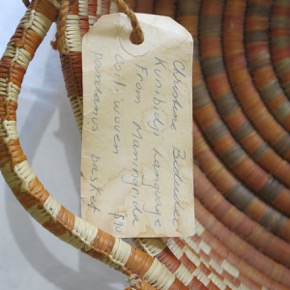 Christine Bidudee
Kunibidji Language
From Maningrida
Coil woven
pandanus basket $90